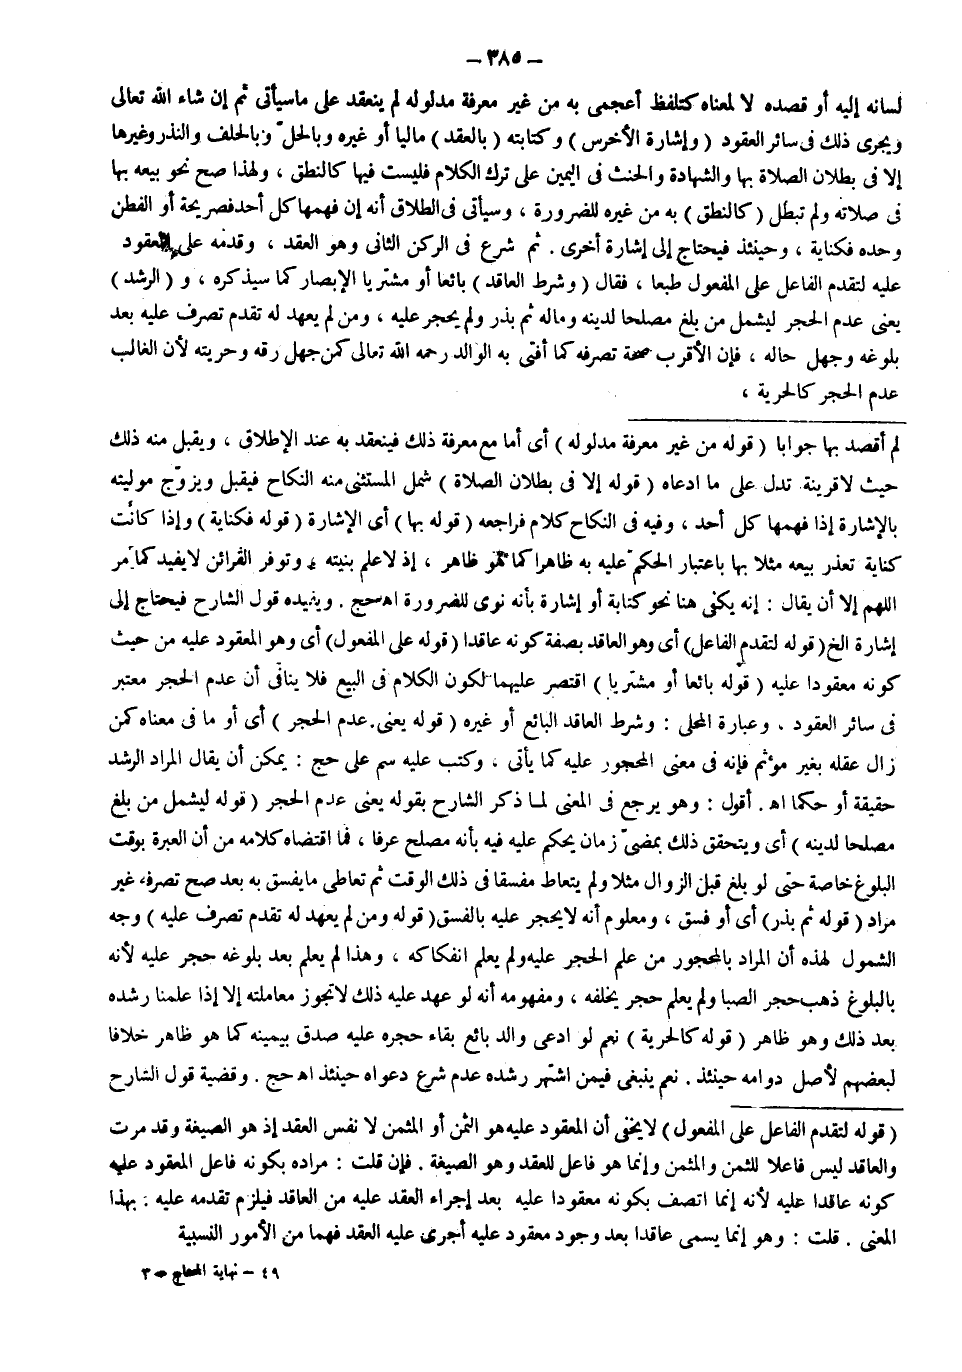 – ٣٨٥ –
لسانه إليه أو قصده لا لمعناه كتلفظ أعجمى به من غير معرفة مدلوله لم ينعقد على ماسيأتى ثم إن شاء الله تعالى
ويجرى ذلك فى سائر العقود ( وإشارة الأخرس ) وكتابته ( بالعقد ) ماليا أو غيره وبالحلّ وبالحلف والنذر وغيرها
إلا فى بطلان الصلاة بها والشهادة والحنث فى اليمين على ترك الكلام فليست فيها كالنطق ، ولهذا صح نحو بيعه بها
فى صلاته ولم تبطل ( كالنطق ) به من غيره للضرورة ، وسيأتى فى الطلاق أنه إن فهمها كل أحد فصريحة أو الفطن
وحده فكناية ، وحينئذ فيحتاج إلى إشارة أخرى . ثم شرع فى الركن الثانى وهو العقد ، وقدمه على المعقود
عليه لتقدم الفاعل على المفعول طبعا ، فقال ( وشرط العاقد ) بائعا أو مشتريا الإبصار كما سيذكره ، و ( الرشد )
يعنى عدم الحجر ليشمل من بلغ مصلحا لدينه وماله ثم بذر ولم يحجر عليه ، ومن لم يعهد له تقدم تصرف عليه بعد
بلوغه وجهل حاله ، فإن الأقرب صحة تصرفه كما أفتى به الوالد رحمه الله تعالى كمن جهل رقه وحريته لأن الغالب
عدم الحجر كالحرية ،
لم أقصد بها جوابا ( قوله من غير معرفة مدلوله ) أى أما مع معرفة ذلك فينعقد به عند الإطلاق ، ويقبل منه ذلك
حيث لاقرينة تدل على ما ادعاه ( قوله إلا فى بطلان الصلاة ) شمل المستثنى منه النكاح فيقبل ويزوّج موليته
بالإشارة إذا فهمها كل أحد ، وفيه فى النكاح كلام فراجعه ( قوله بها ) أى الإشارة ( قوله فكناية ) وإذا كانت
كناية تعذر بيعه مثلا بها باعتبار الحكم عليه به ظاهرا كما هو ظاهر ، إذ لاعلم بنيته ، وتوفر القرائن لايفيد كما مر
اللهم إلا أن يقال : إنه يكفى هنا نحو كتابة أو إشارة بأنه نوى للضرورة اه حج . ويفيده قول الشارح فيحتاج إلى
إشارة الخ ( قوله لتقدم الفاعل ) أى وهو العاقد بصفة كونه عاقدا ( قوله على المفعول ) أى وهو المعقود عليه من حيث
كونه معقودا عليه ( قوله بائعا أو مشتريا ) اقتصر عليهما لكون الكلام فى البيع فلا ينافى أن عدم الحجر معتبر
فى سائر العقود ، وعبارة المحلى : وشرط العاقد البائع أو غيره ( قوله يعنى عدم الحجر ) أى أو ما فى معناه كمن
زال عقله بغير مؤثم فإنه فى معنى المحجور عليه كما يأتى ، وكتب عليه سم على حج : يمكن أن يقال المراد الرشد
حقيقة أو حكما اه . أقول : وهو يرجع فى المعنى لما ذكر الشارح بقوله يعنى عدم الحجر ( قوله ليشمل من بلغ
مصلحا لدينه ) أى ويتحقق ذلك بمضىّ زمان يحكم عليه فيه بأنه مصلح عرفا ، فما اقتضاه كلامه من أن العبرة بوقت
البلوغ خاصة حتى لو بلغ قبل الزوال مثلا ولم يتعاط مفسقا فى ذلك الوقت ثم تعاطى مايفسق به بعد صح تصرفه غير
مراد ( قوله ثم بذر ) أى أو فسق ، ومعلوم أنه لايحجر عليه بالفسق ( قوله ومن لم يعهد له تقدم تصرف عليه ) وجه
الشمول لهذه أن المراد بالمحجور من علم الحجر عليه ولم يعلم انفكاكه ، وهذا لم يعلم بعد بلوغه حجر عليه لأنه
بالبلوغ ذهب حجر الصبا ولم يعلم حجر يخلفه ، ومفهومه أنه لو عهد عليه ذلك لاتجوز معاملته إلا إذا علمنا رشده
بعد ذلك وهو ظاهر ( قوله كالحرية ) نعم لو ادعى والد بائع بقاء حجره عليه صدق بيمينه كما هو ظاهر خلافا
لبعضهم لأصل دوامه حينئذ . نعم ينبغى فيمن اشتهر رشده عدم شرع دعواه حينئذ اه حج . وقضية قول الشارح
( قوله لتقدم الفاعل على المفعول ) لايخفى أن المعقود عليه هو الثمن أو المثمن لا نفس العقد إذ هو الصيغة وقد مرت
والعاقد ليس فاعلا للثمن والمثمن وإنما هو فاعل للعقد وهو الصيغة . فإن قلت : مراده بكونه فاعل المعقود عليه
كونه عاقدا عليه لأنه إنما اتصف بكونه معقودا عليه بعد إجراء العقد عليه من العاقد فيلزم تقدمه عليه . بهذا
المعنى . قلت : وهو إنما يسمى عاقدا بعد وجود معقود عليه أجرى عليه العقد فهما من الأمور النسبية
٤٩ – نهاية المحتاج – ٣